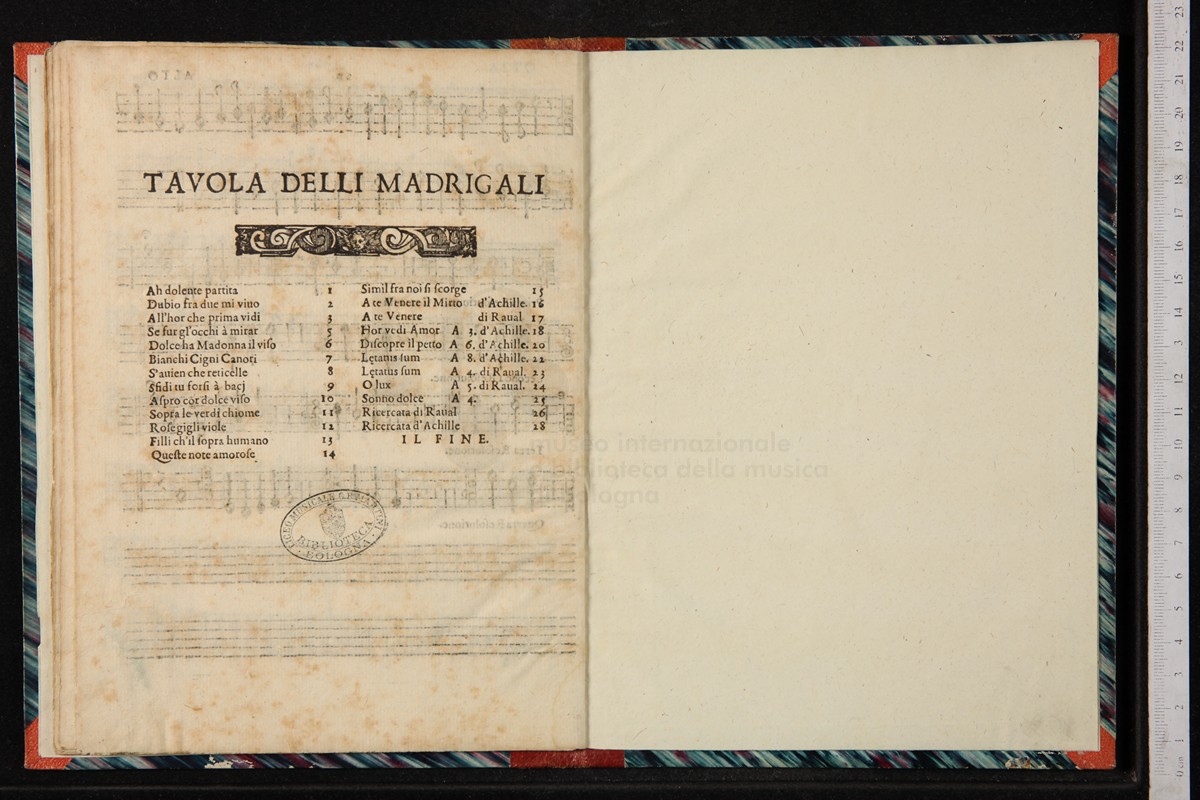 TAVOLA DELLI MADRIGALI
Ah dolente partita 1
Dubio fra due mi viuo 2
All'hor che prima vidi 3
Se fur gl'occhi à mirar 5
Dolce ha Madonna il viſo 6
Bianchi Cigni Canori 7
S'auien che reticelle 8
Sfidi tu forſi à bacj 9
Aſpro cor dolce viſo 10
Sopra le verdi chiome 11
Roſe gigli viole 12
Filli ch'il ſopra humano 13
Queſte note amoroſe 14
Simil fra noi ſi ſcorge 15
A te Venere il Mirto d'Achille. 16
A te Venere di Raual 17
Hor vedi Amor A 3. d'Achille. 18
Diſcopre il petto A 6. d'Achille. 20
Lętatus ſum A 8. d'Achille. 22
Lętatus ſum A 4. di Raual. 23
O lux A 5. di Raual. 24
Sonno dolce A 4. 25
Ricercata di Raual 26
Ricercata d'Achille 28
IL FINE.
LICEO MUSICALE G.B. MARTINI
BIBLIOTECA
BOLOGNA
museo internazionale
biblioteca della musica
bologna
ALTO
0 cm 1 2 3 4 5 6 7 8 9 10 11 12 13 14 15 16 17 18 19 20 21 22 23